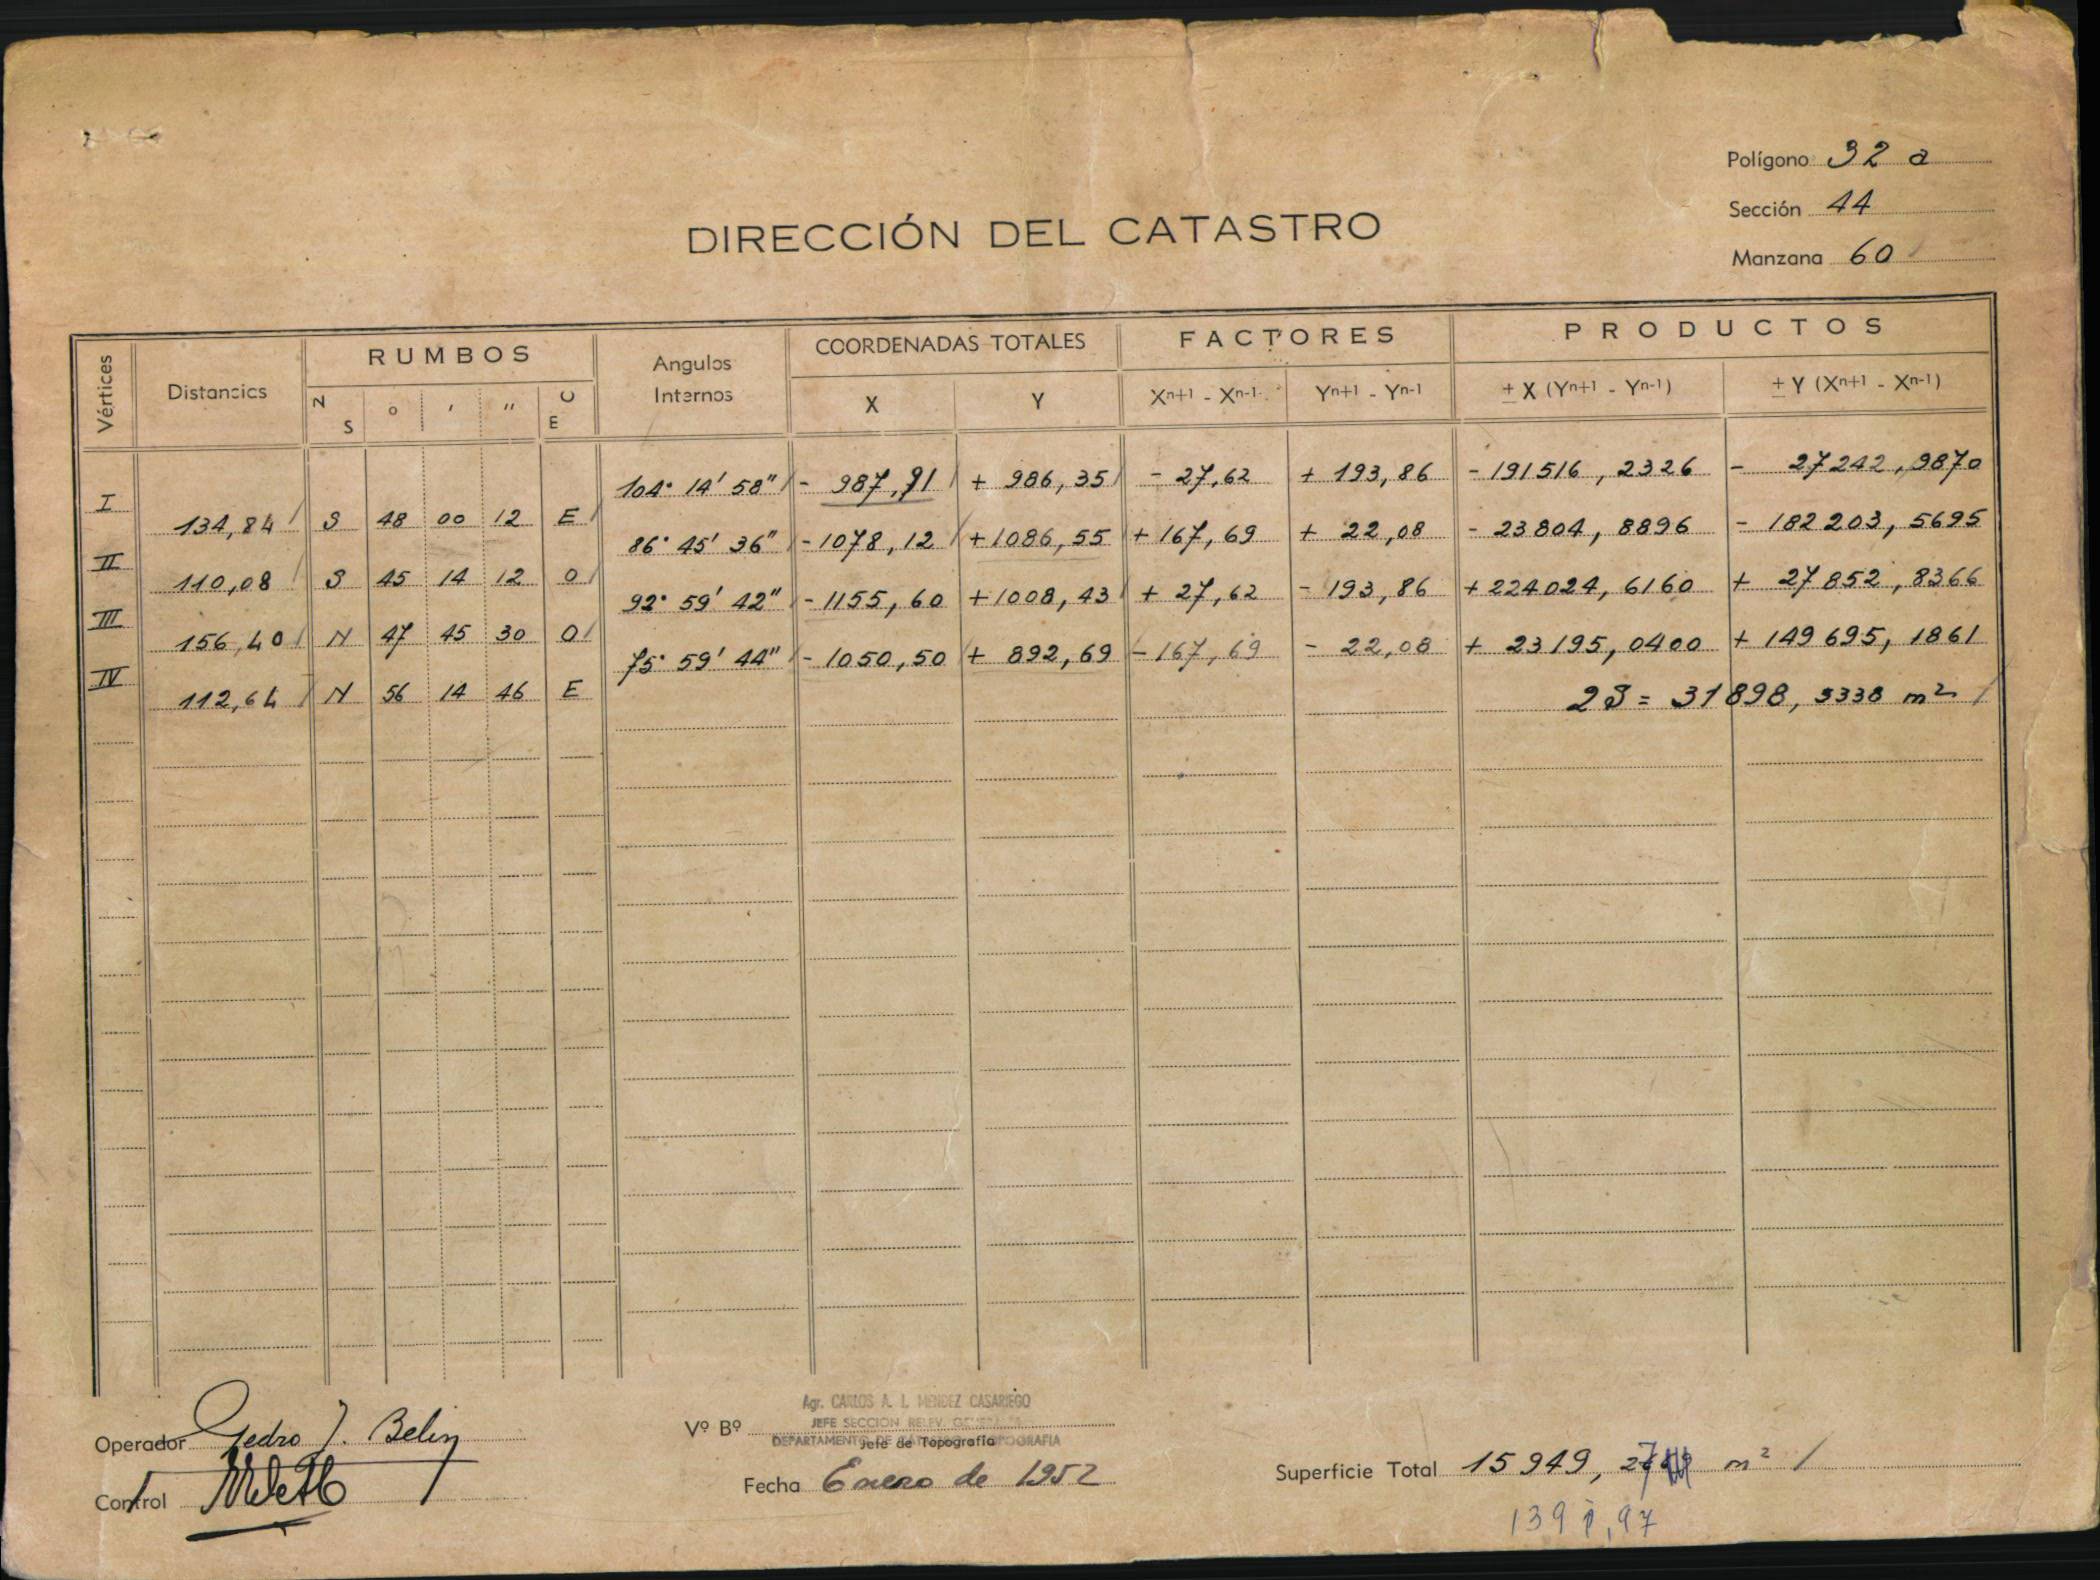 Polígono 32 a
Sección 44
DIRECCIÓN DEL CATASTRO
Manzana 60
Vértices Distancias RUMBOS Angulos Internos COORDENADAS TOTALES FACTORES PRODUCTOS
N S ° ' " O E X Y Xn+1 - Xn-1 Yn+1 - Yn-1 ± X (Yn+1 - Yn-1) ± Y (Xn+1 - Xn-1)
I 104° 14' 58" - 987,91 + 986,35 - 27,62 + 193,86 - 191516,2326 - 27242,9870
134,84 S 48 00 12 E
II 86° 45' 36" - 1078,12 + 1086,55 + 167,69 + 22,08 - 23804,8896 - 182203,5695
110,08 S 45 14 12 O
III 92° 59' 42" - 1155,60 + 1008,43 + 27,62 - 193,86 + 224024,6160 + 27852,8366
156,40 N 47 45 30 O
IV 75° 59' 44" - 1050,50 + 892,69 - 167,69 - 22,08 + 23195,0400 + 149695,1861
112,64 N 56 14 46 E
2S = 31898, 5338 m²
Agr. CARLOS A. L. MENDEZ CASARIEGO
Vº Bº
JEFE SECCIÓN RELEV.
DEPARTAMENTO DE
Jefe de Topografía
Operador Pedro J. Belin
Fecha Enero de 1952
Superficie Total 15949, m²
Control
139 ,97